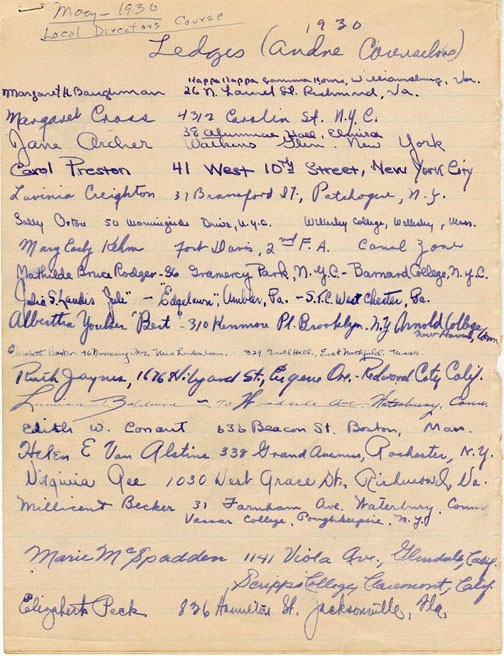 Macy - 1930
Local Directors Course
1930
Ledges (Andre Counselors)
Kappa Kappa Gamma House, Williamsburg, Va.
Margaret H Baughman 26 N. Laurel St. Richmond, Va.
Margaret Cross 4312 Carolin St. N.Y.C.
38 Alumnae Hall, Elmira
Jane Archer Watkins Glen. New York
Carol Preston 41 West 10th Street, New York City
Lavinia Creighton 37 Bransford St., Patchogue, N.Y.
Sally Orton 50 Morningside Drive, N.Y.C. Wellesley College, Wellesley, Mass.
Mary Early Kehm Fort Davis, 2nd F.A. Canal Zone
Mathilde Bruce Rodger - 36 Gramercy Park, N.Y.C. - Barnard College, N.Y.C.
Julia S. Landis - "Edgelawn", Ambler, Pa. - S.T.C. West Chester, Pa.
Albertha Youher "Bert" - 310 Kenmore Pl. Brooklyn. N.Y Arnold College,
New Haven, Conn
Elizabeth New London - 329 Hall, East Northfield, Mass
Ruth Jaynes, 1676 Hilyard St., Eugene Ore. - Redwood City Calif.
Baldwin - Ave. Waterbury, Conn.
Edith W. Conant 636 Beacon St. Boston, Mass.
Helen E Van Alstine 338 Grand Avenue, Rochester, N.Y.
Virginia Gee 1030 West Grace St, Richmond, Va.
Millicent Becker 31 Farnham Ave. Waterbury, Conn.
Vassar College, Poughkeepsie, N.Y.
Marie McSpadden 1141 Viola Ave., Glendale, Calif.
Scripps College, Claremont, Calif.
Elizabeth Peck 836 Hamilton St. Jacksonville, Fla.